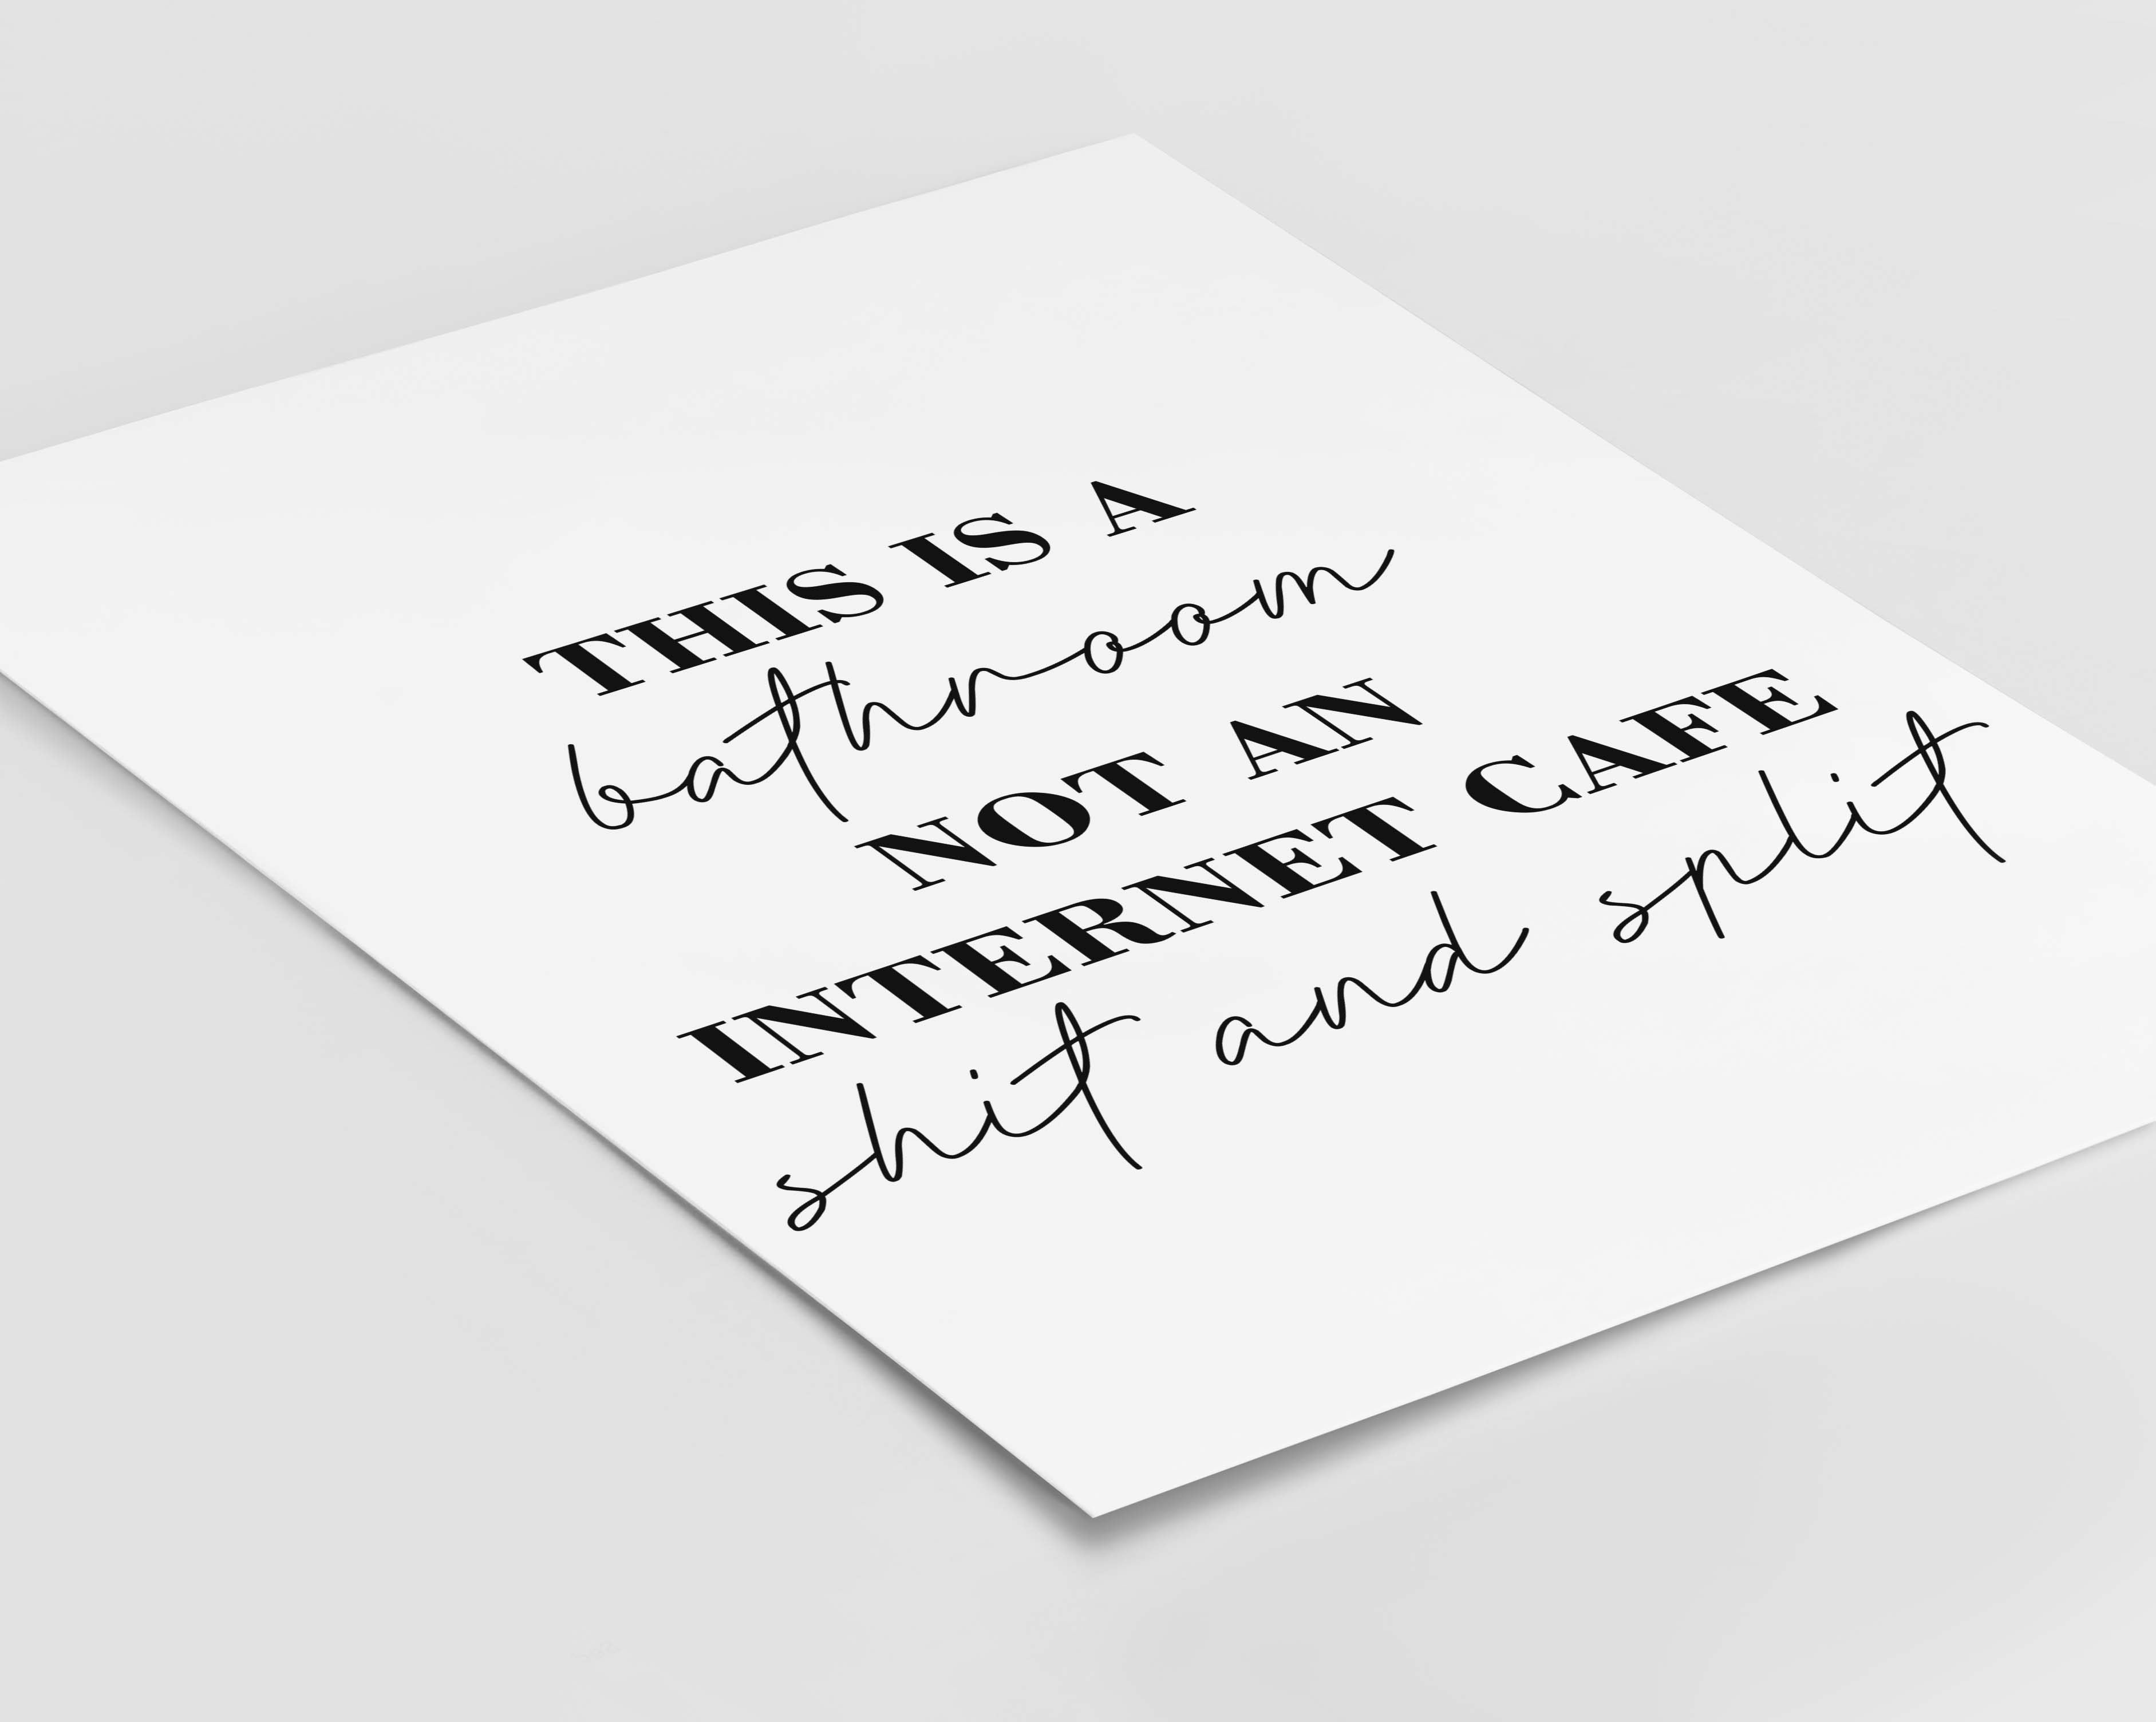 THIS IS A
bathroom
NOT AN
INTERNET CAFE
shit and split